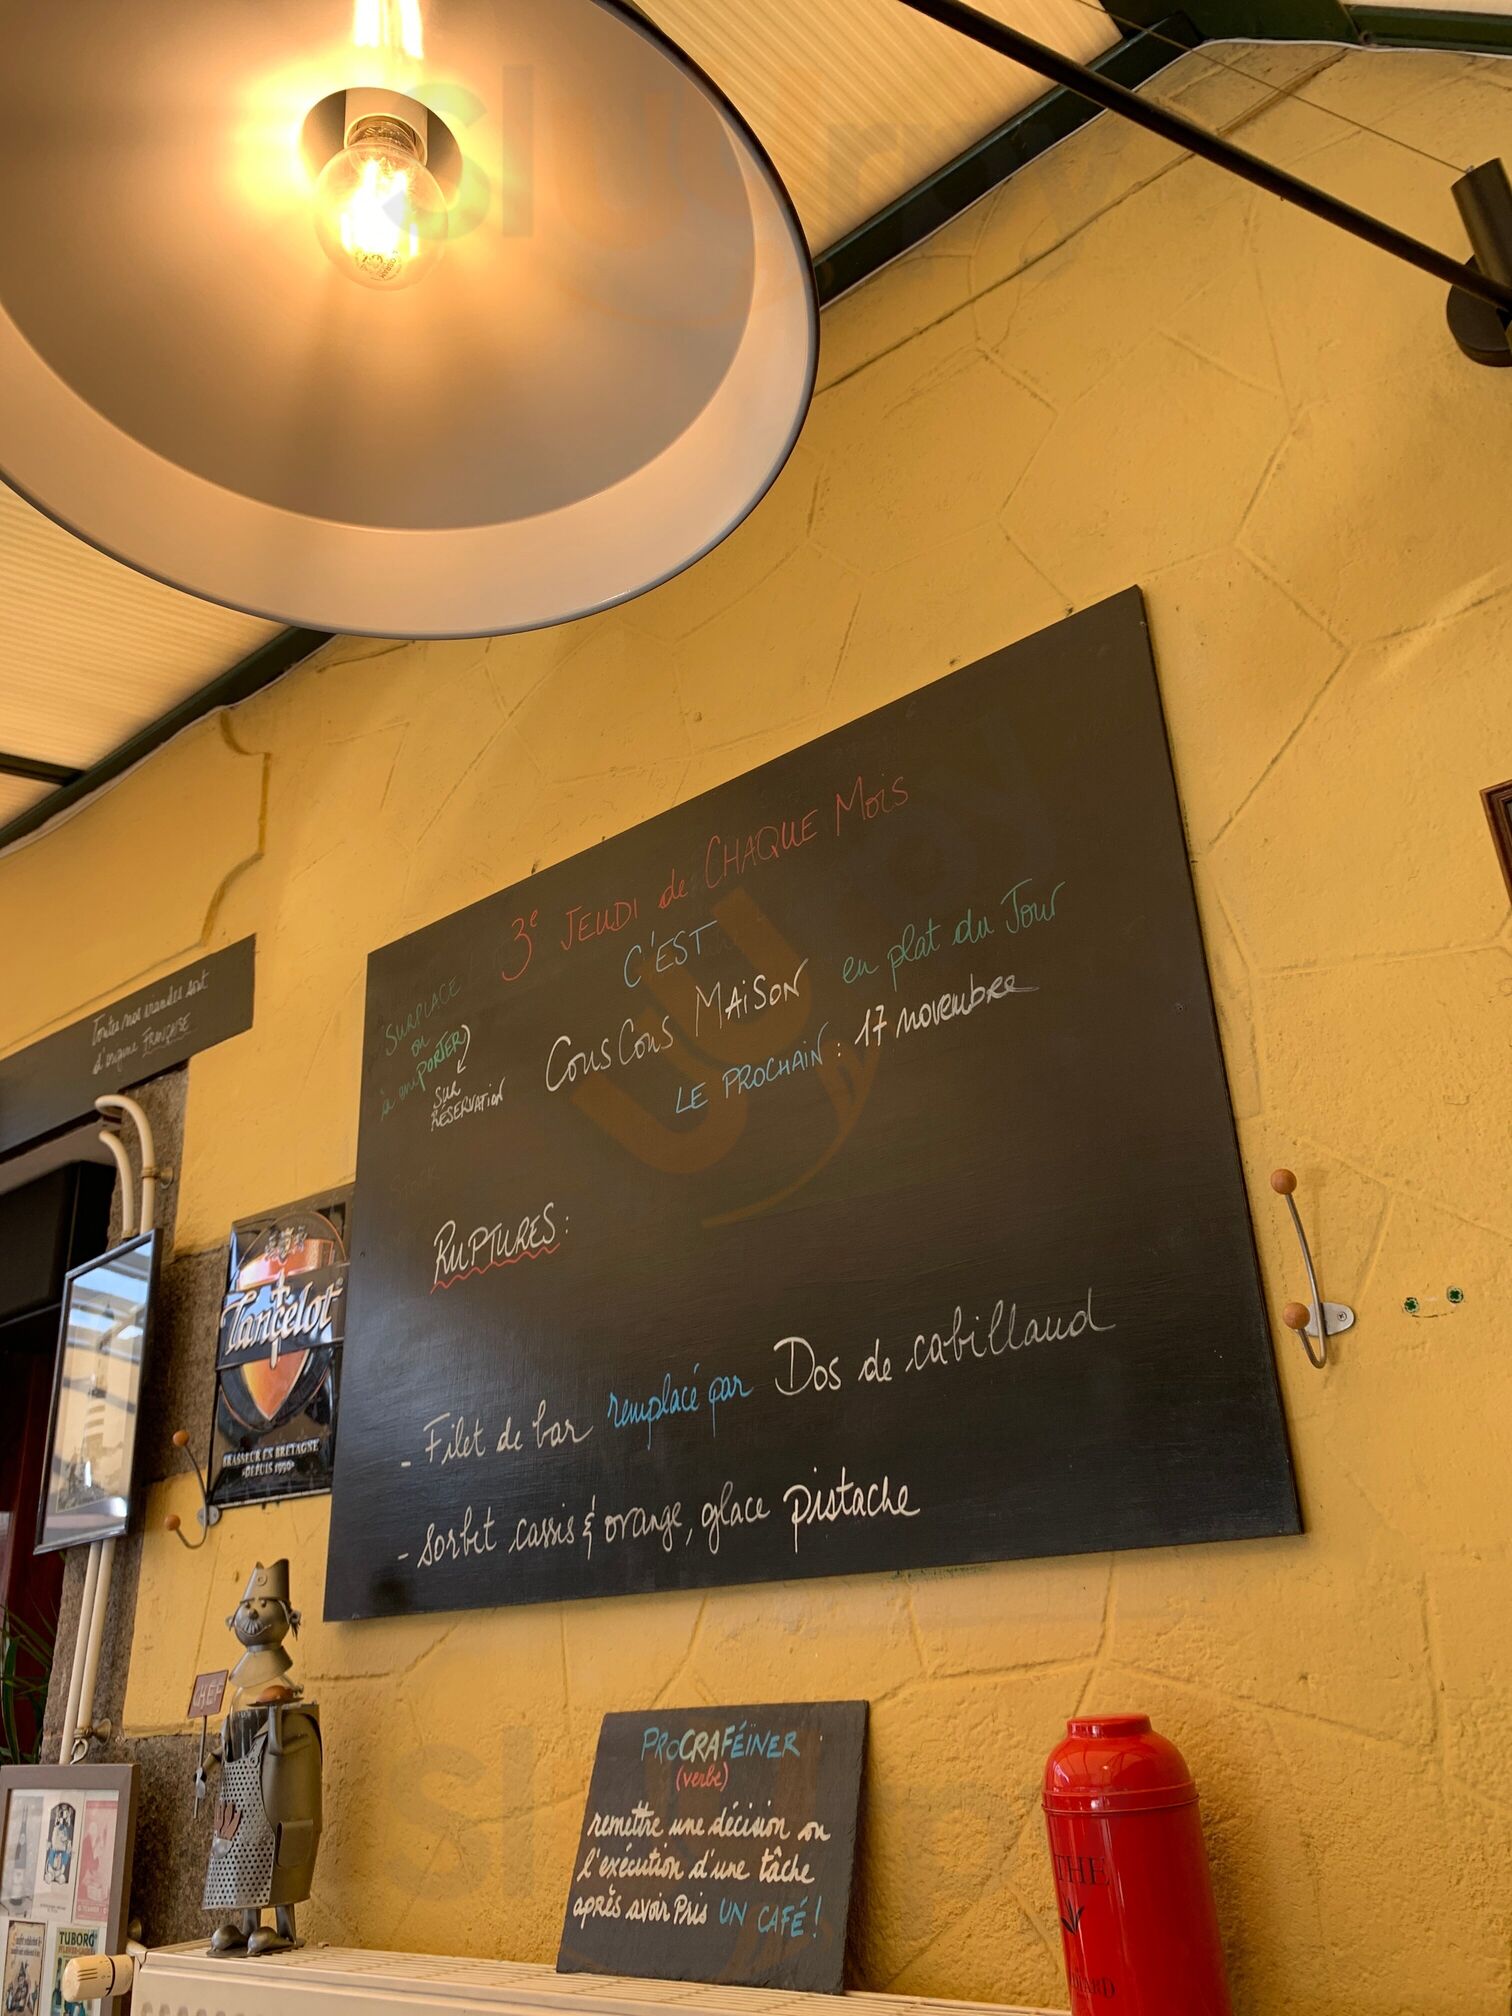 3e JEUDI de CHAQUE Mois
C'EST
COUSCOUS MAISON en plat du Jour
LE PROCHAIN : 17 novembre
SURPLACE
ou
à emPORTER)
SUR
RÉSERVATION
RUPTURES :
- Filet de bar remplacé par Dos de cabillaud
- sorbet cassis & orange, glace pistache
Toutes nos viandes sont
d'origine FRANÇAISE
Lancelot
BRASSEUR EN BRETAGNE
-DEPUIS 1990-
CHEF
PROCRAFÉÏNER
(verbe)
remettre une décision ou
l'exécution d'une tâche
après avoir Pris UN CAFÉ !
THE
TUBORG